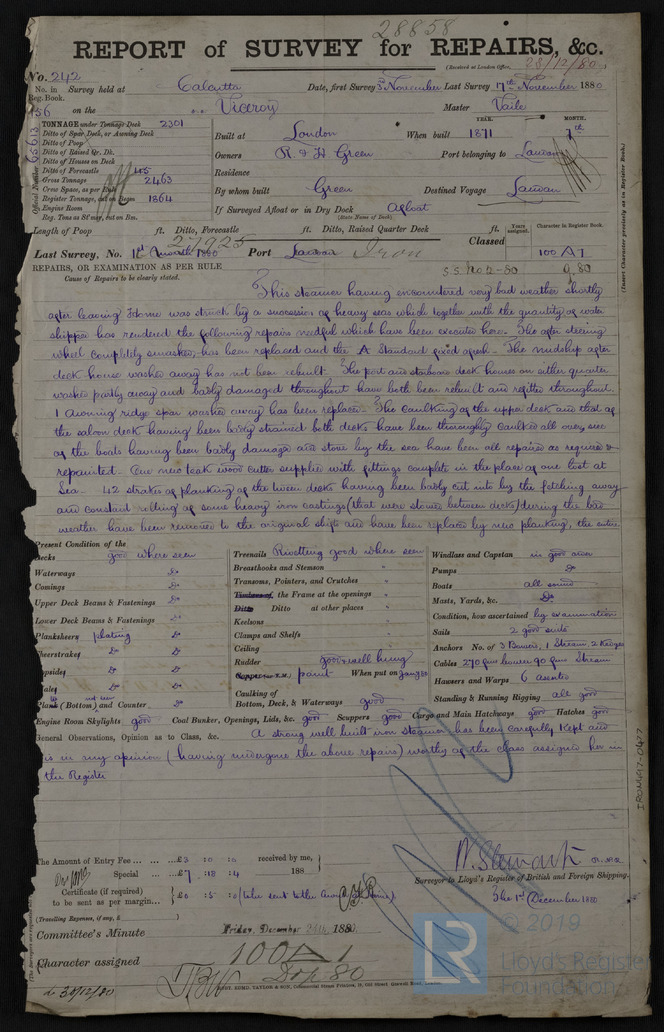 28858
REPORT of SURVEY for REPAIRS, &c.
(Received at London Office, 28/12/80)
No. 242
No. in Survey held at Calcutta Date, first Survey 3rd November Last Survey 7th November 1880
Reg. Book.
56 on the Viceroy Master Vaile
TONNAGE under Tonnage Deck 2301
Ditto of Spar Deck, or Awning Deck
Ditto of Poop
Ditto of Raised Qr. Dk.
Ditto of Houses on Deck
Ditto of Forecastle
Gross Tonnage 2463
Crew Space, as per Rule
Register Tonnage, cut on Beam 1864
Engine Room
Reg. Tons as St'mer, cut on Bm.
Official Number 65613
YEAR. MONTH.
Built at London When built 1871 7th
Owners R. & H Green Port belonging to London
Residence
By whom built Green Destined Voyage London
If Surveyed Afloat or in Dry Dock Afloat
(State Name of Dock)
Length of Poop ft. Ditto, Forecastle ft. Ditto, Raised Quarter Deck ft.
Classed
Years assigned.
Character in Register Book.
(Insert Character precisely as in Register Book.)
Last Survey, No. 1880 Port London Iron 100 A1
SS No 2-80 9,80
REPAIRS, OR EXAMINATION AS PER RULE
Cause of Repairs to be clearly stated.
This steamer having encountered very bad weather shortly
after leaving Home was struck by a succession of heavy seas which together with the quantity of water
shipped has rendered the following repairs needful which have been executed here. The after steering
wheel completely smashed, has been replaced and the A Standard fixed afresh. The midship after
deck house washed away has not been rebuilt. The port and starboard deck houses on either quarter
washed partly away and badly damaged throughout have both been rebuilt and refitted throughout.
1 Awning ridge spar washed away has been replaced. The caulking of the upper deck and that of
the saloon deck having been badly strained both decks have been thoroughly caulked all over, six
of the boats having been badly damaged and stove by the sea have been all repaired as required &
repainted. One new teak wood cutter supplied with fittings complete in the place of one lost at
Sea. 42 strakes of planking of the tween decks having been badly cut into by the fetching away
and constant rolling of some heavy iron castings (that were stowed between decks) during the bad
weather have been removed to the original ship and have been replaced by new planking, the entire
Present Condition of the
Decks good where seen
Waterways Do
Comings Do
Upper Deck Beams & Fastenings Do
Lower Deck Beams & Fastenings Do
Planksheers plating Do
Sheerstrakes Do
Topsides Do
Wales Do
Plank (Bottom) and Counter not seen Do
Treenails Rivetting good where seen
Breasthooks and Stemson "
Transoms, Pointers, and Crutches "
Timbers of the Frame at the openings "
Ditto Ditto at other places "
Keelsons "
Clamps and Shelfs "
Ceiling "
Rudder good & well hung
Copper or Y.M. paint When put on Jany 80
Caulking of
Bottom, Deck, & Waterways good
Windlass and Capstan in good order
Pumps Do
Boats all sound
Masts, Yards, &c. Do
Condition, how ascertained by examination
Sails 2 good suits
Anchors No. of 3 Bowers, 1 Stream, 2 Kedges
Cables 270 fms bower 90 fms Stream
Hausers and Warps 6 assorted
Standing & Running Rigging all good
Engine Room Skylights good Coal Bunker, Openings, Lids, &c. good Scuppers good Cargo and Main Hatchways good Hatches good
General Observations, Opinion as to Class, &c. A strong well built iron steamer has been carefully kept and
is in my opinion (having undergone the above repairs) worthy of the class assigned her in
the Register
The Amount of Entry Fee £3 : 0 : 0 received by me,
Special £7 : 18 : 4 188
Certificate (if required)
to be sent as per margin £0 : 5 : 0
(Travelling Expenses, if any, £ )
Surveyor to Lloyd's Register of British and Foreign Shipping.
The 1st December 1880
Committee's Minute Friday, December 1880.
Character assigned 100 A 1
80
30/12/80
IRON447-0477
LR
© 2019
Lloyd's Register
Foundation